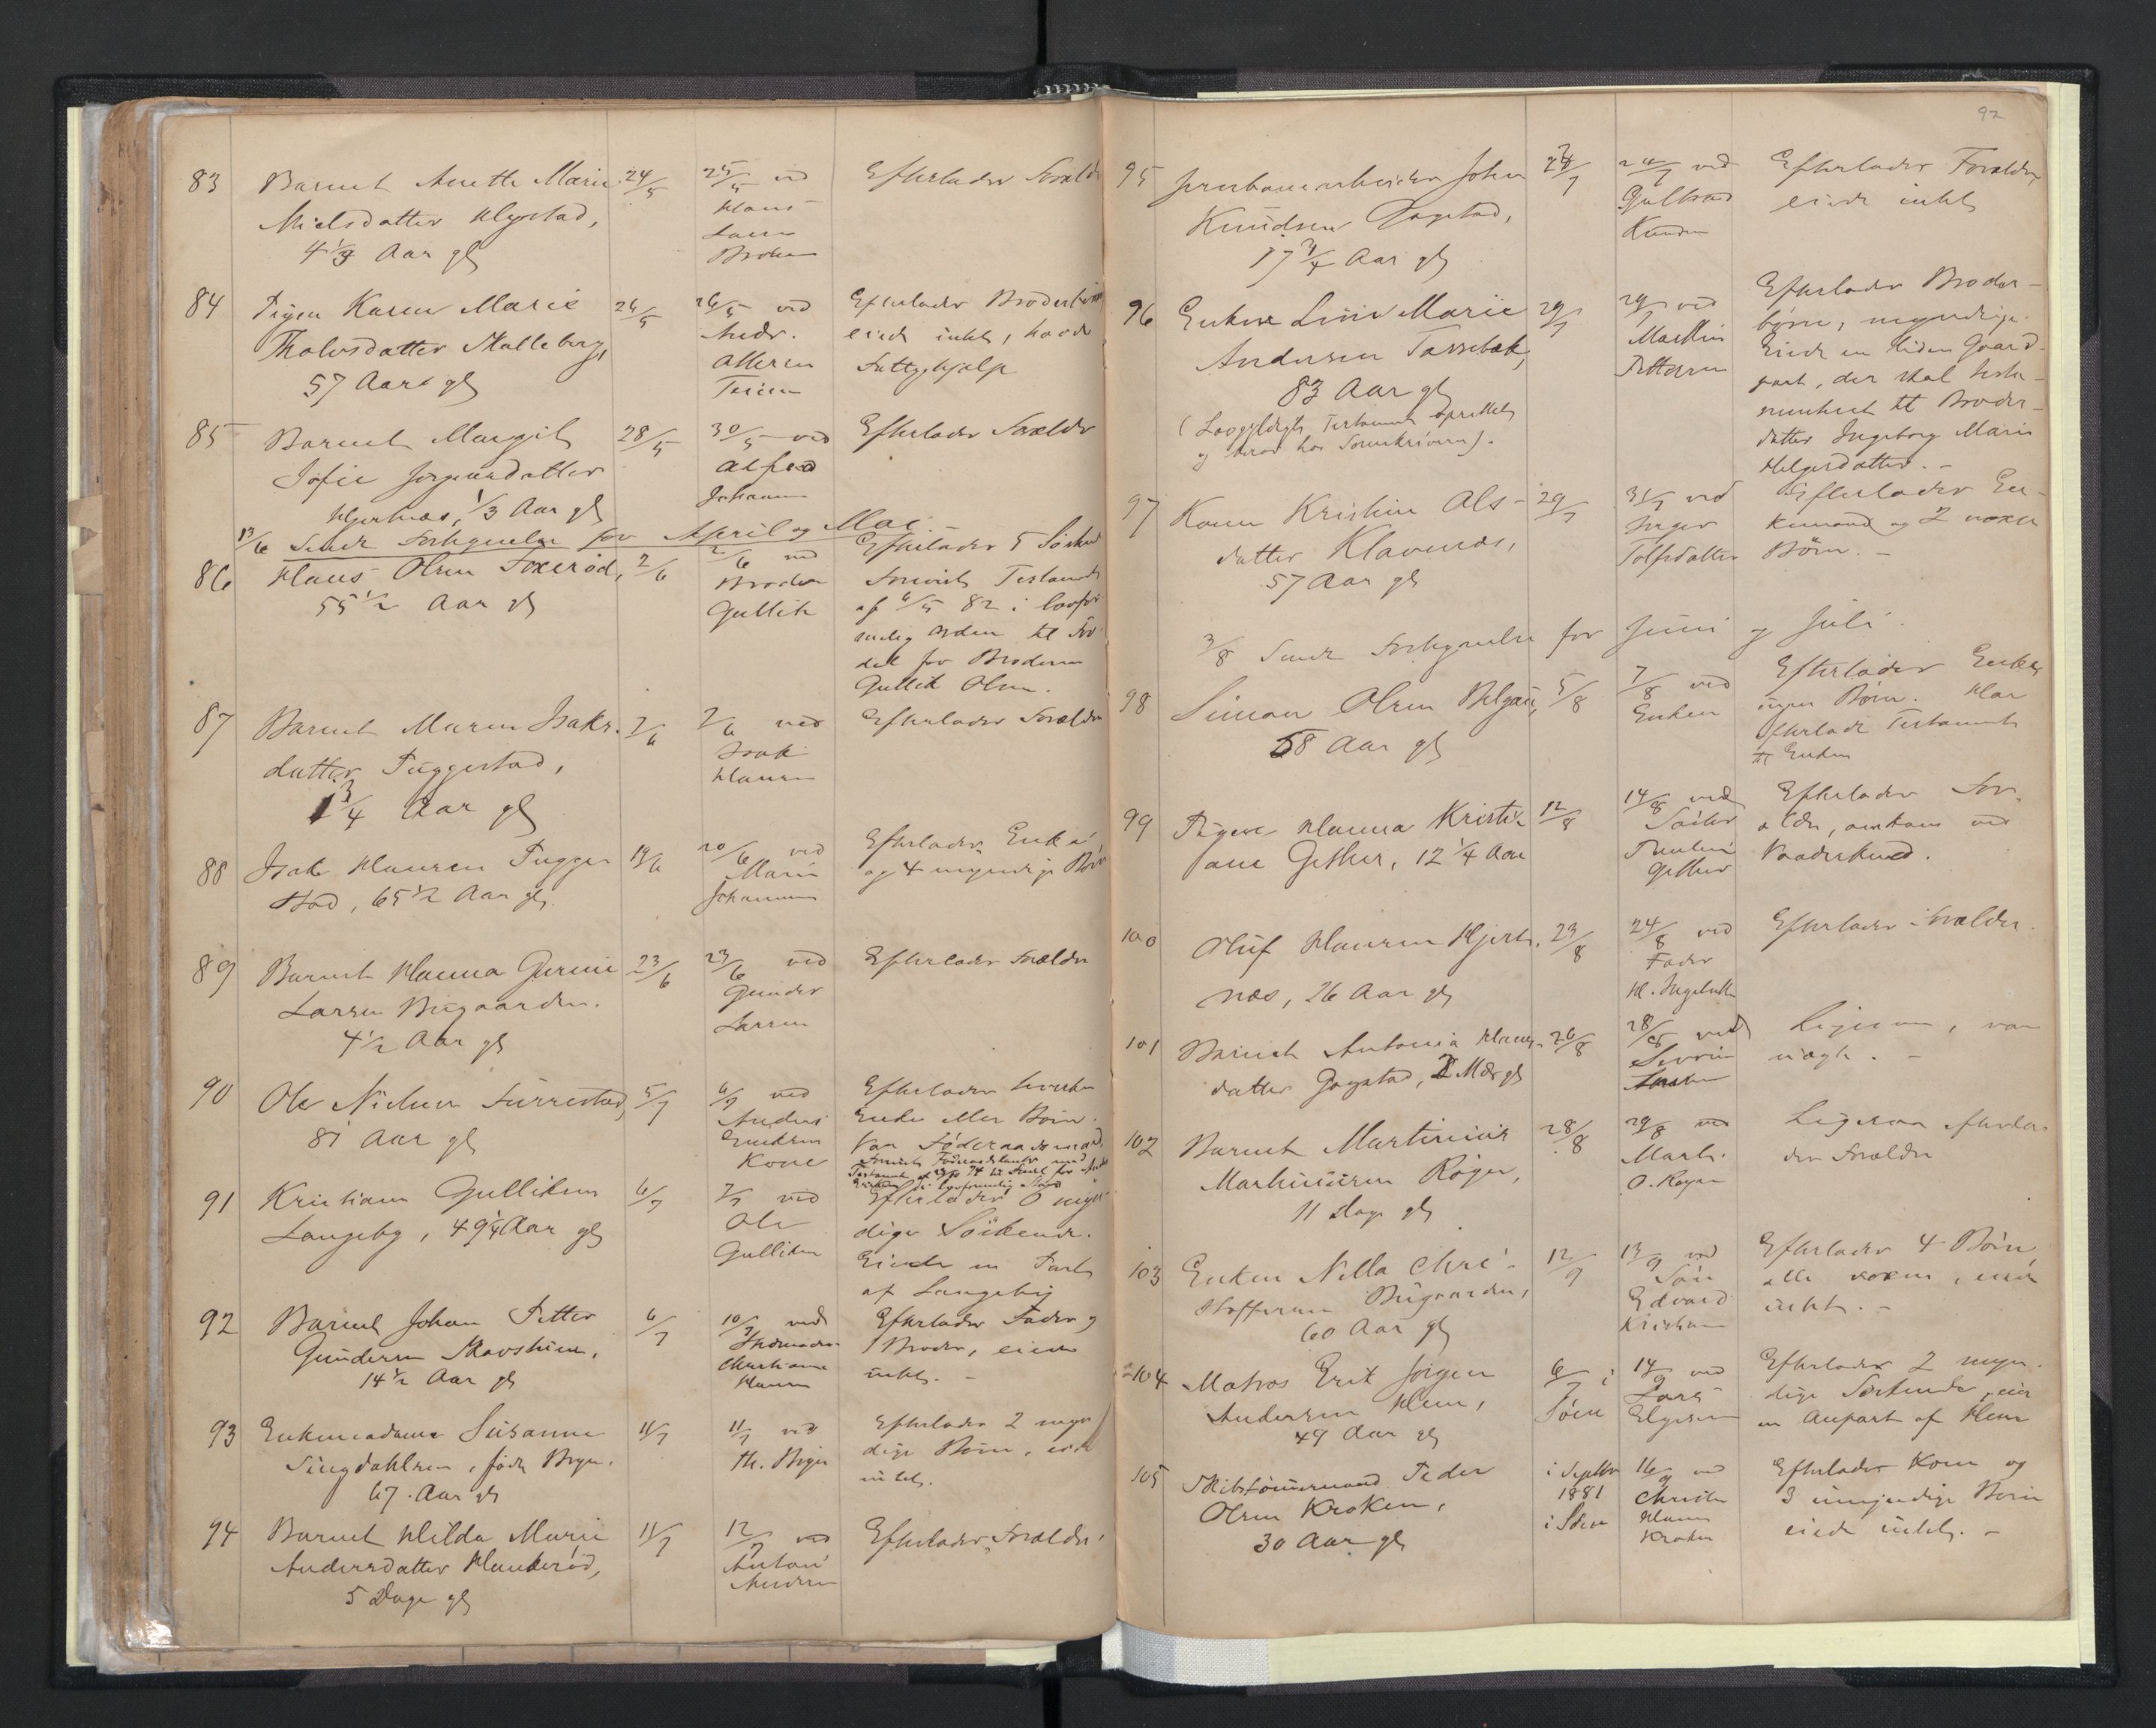 83 Barnet Anette Marie 24/5 25/5 ved Efterlader Foræld
Nielsdatter Hystad, Hans
4 1/3 Aar gl Larsen
84 Pigen Karen Marie 26/5 26/5 ved Efterlader Broderbørn
Tholvsdatter Skalleberg, Andr. eiede intet, havde
57 Aar gl Fattighjælp
85 Barnet Margit 28/5 30/5 ved Efterlader Forældre
Sofie Jørgensdatter Alfred
Hjertnæs, 1/3 Aar gl Johansen
13/6 Sendt Fortegnelse for April og Mai. -
86 Hans Olsen Foxerød, 2/6 2/6 ved Efterlader 5 Søskend
55 1/2 Aar gl Broder Testament
Gullik af 6/5 82 i lovfor
melig Orden til For
del for Broderen
Gullik Olsen.
87 Barnet Maren Isaks- 2/6 2/6 ved Efterlader Forældre
datter Tuggestad, Isak
1 3/4 Aar gl Hansen
88 Isak Hansen Tugge- 19/6 20/6 ved Efterlader Enke
stad, 65 1/2 Aar gl. Marie og 4 myndige Børn
Johannesen
89 Barnet Hanna Gurine 23/6 23/6 ved Efterlader Forældre
Larsen Bugaarden. Gunder
4 1/2 Aar gl Larsen
90 Ole Nielsen Furrestad, 5/7 6/7 ved Efterlader hverken
81 Aar gl Anders Enke eller Børn.
Kone Var Føderaadsmand.
91 Kristian Gulliksen 6/7 7/7 ved Efterlader 6 myn
Langeby, 49 1/4 Aar gl Ole dige Søskende.
Gulliksen Eiede en Part
af Langeby
92 Barnet Johan Petter 6/7 10/7 ved Efterlader Fader og
Gundersen Skovheim, Christiane 1 Broder, eiede
14 1/2 Aar gl Hansen intet. -
93 Enkemadame Susanne 11/7 11/7 ved Efterlader 2 myn
Lingdahlsen, født Bryn. Th. Bryn dige Børn, eiede
67 Aar gl intet.
94 Barnet Hilda Marie 11/7 12/7 ved Efterlader Forældre
Andersdatter Haukerød, Anton
5 Dage gl Andersen
92
95 Jernbanearbeider Johan 24/7 24/7 ved Efterlader Forældre,
Knudsen Gogstad, Gulbrand eiede intet
17 3/4 Aar gl Knudsen
96 Enken Line Marie 29/7 29/7 ved Efterlader Broder-
Andersen Tassebæk, Mathis børn, myndige.
83 Aar gl Pettersen Eiede en liden Gaard-
(Lovgyldigt Testament oprettet part, der skal testa-
og beror hos Sorenskriveren). menteret til Broder-
datter Ingeborg Marie
Helgesdatter. -
97 Kone Kristine Als- 29/7 31/7 ved Efterlader En-
datter Klavenæs, Inger kemand og 2 voxne
57 Aar gl Tolfsdatter Børn. -
3/8 Sendt Fortegnelse for Juni og Juli.
98 Simon Olsen Belgau, 5/8 7/8 ved Efterlader Enke,
58 Aar gl Enken ingen Børn. Har
efterladt Testament
til Enken
99 Pigen Hanna Kristi- 12/8 14/8 ved Efterlader For-
ane Gether, 12 1/4 Aar ældre, omkom ved
Gether Vaadeskud.
100 Oluf Hansen Hjert- 23/8 24/8 ved Efterlader Forældre.
næs, 26 Aar gl Fader
H. Ingebretsen
101 Barnet Antonia Hans- 26/8 28/8 ved Ligesom, var
datter Gogstad, 2 Mdr gl Severin uægte. -
102 Barnet Martinius 28/8 29/8 ved Ligesaa efterla-
Martiniusen Røgen, Mart. der Forældre
11 Dage gl O. Røgen
103 Enken Nella Chri- 12/9 13/9 ved Efterlader 4 Børn,
stoffersen Bugaarden, Søn alle voxne, eiede
60 Aar gl Edvard intet. -
Kristian
104 Matros Erik Jørgen 6/7 i 14/9 ved Efterlader 2 myn-
Andersen Hem, Søen Lars dige Søskende, eier
49 Aar gl Elgesem en Anpart af Hem
105 Skibstømmermand Peder i Septbr 16/9 ved Efterlader Kone og
Olsen Kroken, 1881 Christen 3 umyndige Børn
30 Aar gl i Søen Hansen eiede intet. -
Kroken